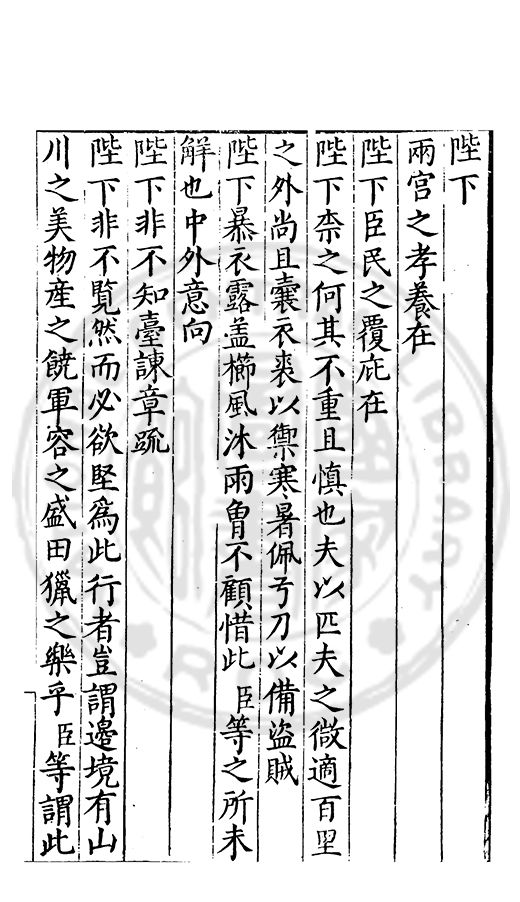 陛下
兩宫之孝養在
陛下臣民之覆庇在
陛下柰之何其不重且慎也夫以匹夫之微適百里
之外尚且囊衣裘以禦寒暑佩弓刀以備盜賊
陛下暴衣露盖櫛風沐雨曾不顧惜此臣等之所未
解也中外意向
陛下非不知臺諫章疏
陛下非不覧然而必欲堅爲此行者豈謂邉境有山
川之美物産之饒軍容之盛田獵之樂乎臣等謂此